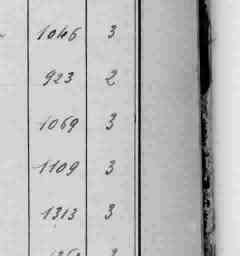 1046 3
923 2
1069 3
1109 3
1313 3